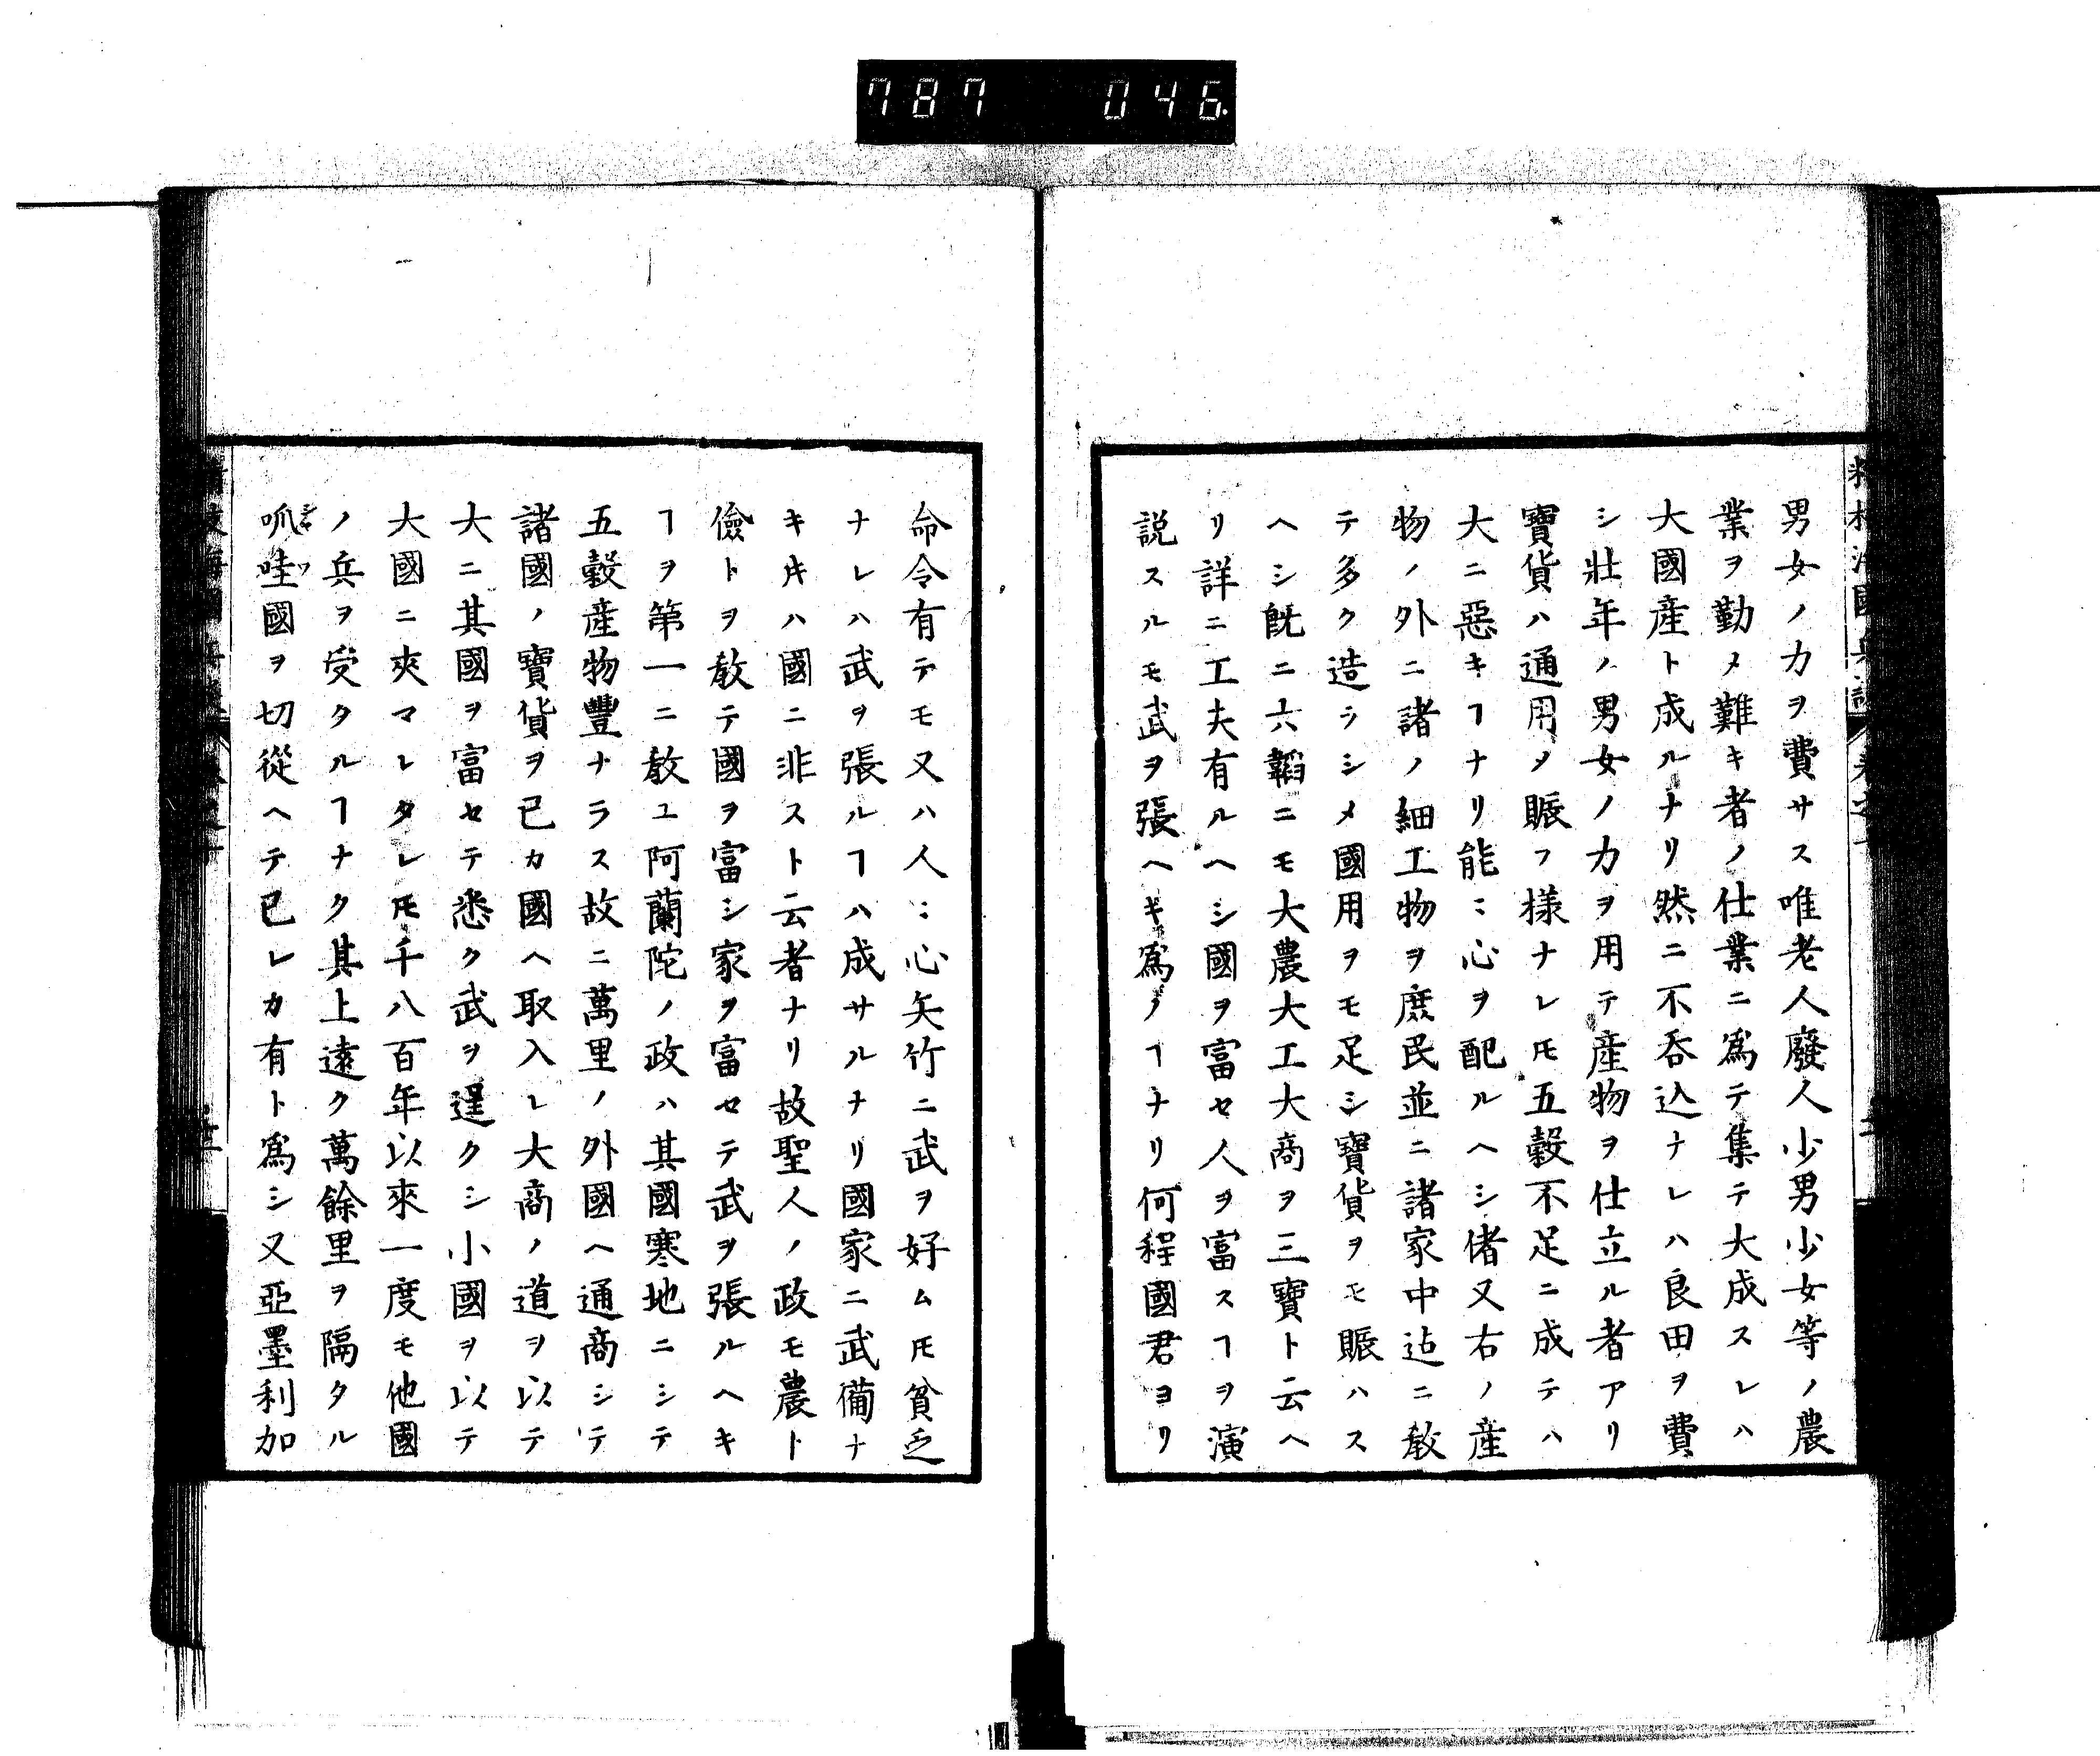 787 046
男女ノカヲ費サス唯老人廢人少男少女等ノ農
業ヲ勤メ難キ者ノ仕業ニ爲テ集テ大成スレハ
大國産ト成ルナリ然ニ不呑込ナレハ良田ヲ費
シ壯年ノ男女ノ力ヲ用テ産物ヲ仕立ル者アリ
寶貨ハ通用〆賑フ様ナレ𪜈五穀不足ニ成テハ
大ニ惡キヿナリ能〻心ヲ配ルヘシ偖又右ノ産
物ノ外ニ諸ノ細工物ヲ庶民並ニ諸家中迠ニ敎
テ多ク造ラシメ國用ヲモ足シ寶貨ヲモ賑ハス
ヘシ旣ニ六韜ニモ大農大工大商ヲ三寶ト云ヘ
リ詳ニ工夫有ルヘシ國ヲ富セ人ヲ富スヿヲ演
説スルモ武ヲ張ヘキ爲ノヿナリ何程國君ヨリ
命令有テモ又ハ人〻心矢竹ニ武ヲ好ム𪜈貧乏
ナレハ武ヲ張ルヿハ成サルナリ國家ニ武備ナ
キ片ハ國ニ非スト云者ナリ故聖人ノ政モ農ト
儉トヲ敎テ國ヲ富シ家ヲ富セテ武ヲ張ルヘキ
ヿヲ第一ニ敎ユ阿蘭陀ノ政ハ其國寒地ニシテ
五穀産物豐ナラス故ニ萬里ノ外國ヘ通商シテ
諸國ノ寶貨ヲ已カ國ヘ取入レ大商ノ道ヲ以テ
大ニ其國ヲ富セテ悉ク武ヲ逞クシ小國ヲ以テ
大國ニ夾マレタレ𪜈千八百年以來一度モ他國
ノ兵ヲ受タルヿナク其上遠ク萬餘里ヲ隔タル
呱哇國ヲ切從ヘテ已レカ有ト爲シ又亞墨利加